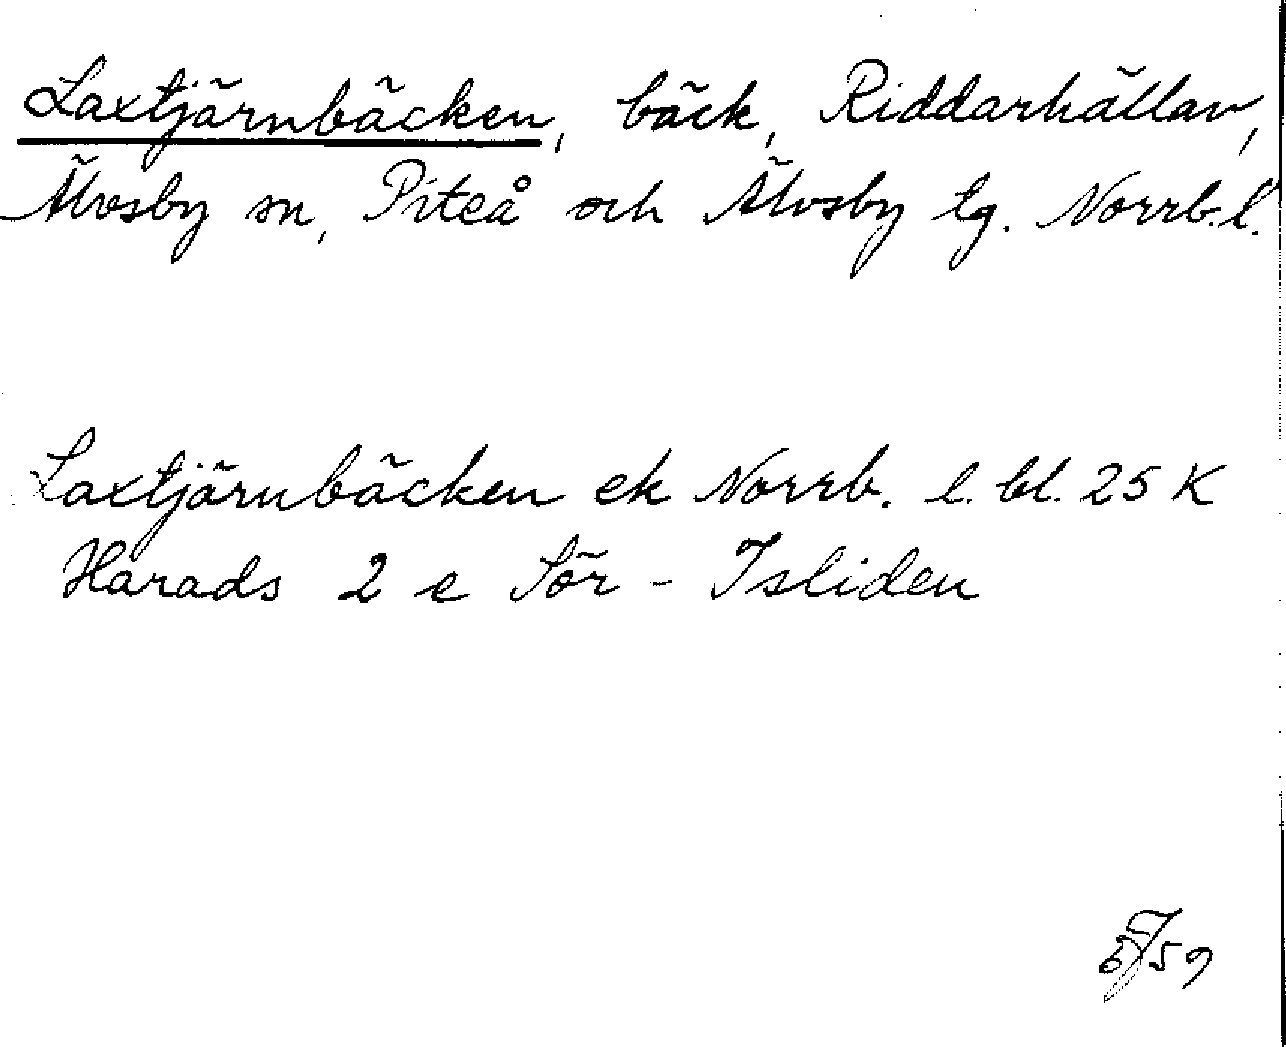 Laxtjärnbäcken, bäck, Riddarhällan,
Älvsby sn, Piteå och Älvsby tg. Norrb.l.
Laxtjärnbäcken ek Norrb. l. bl. 25 K
Harads 2 e Sör - Isliden